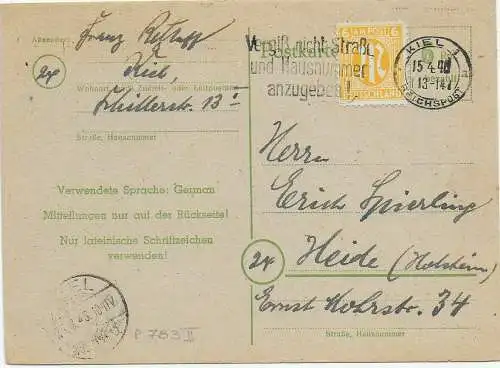 Absender:
Franz
Kiel,
24
Wohnort, auch Zustell- oder Leitpostamt
Schillerstr. 13 I
Straße, Hausnummer
Verwendete Sprache: German
Mitteilungen nur auf der Rückseite!
Nur lateinische Schriftzeichen
verwenden!
KIEL
P 783 II
Postkarte
Vergiß nicht Straße
und Hausnummer
anzugeben!
6 AM POST 6
DEUTSCHLAND
KIEL 1
15.4.46
13-14
REICHSPOST
Herrn
Erich Spierling
24
Heide (Holstein)
Ernst Mohrstr. 34
Straße, Hausnummer